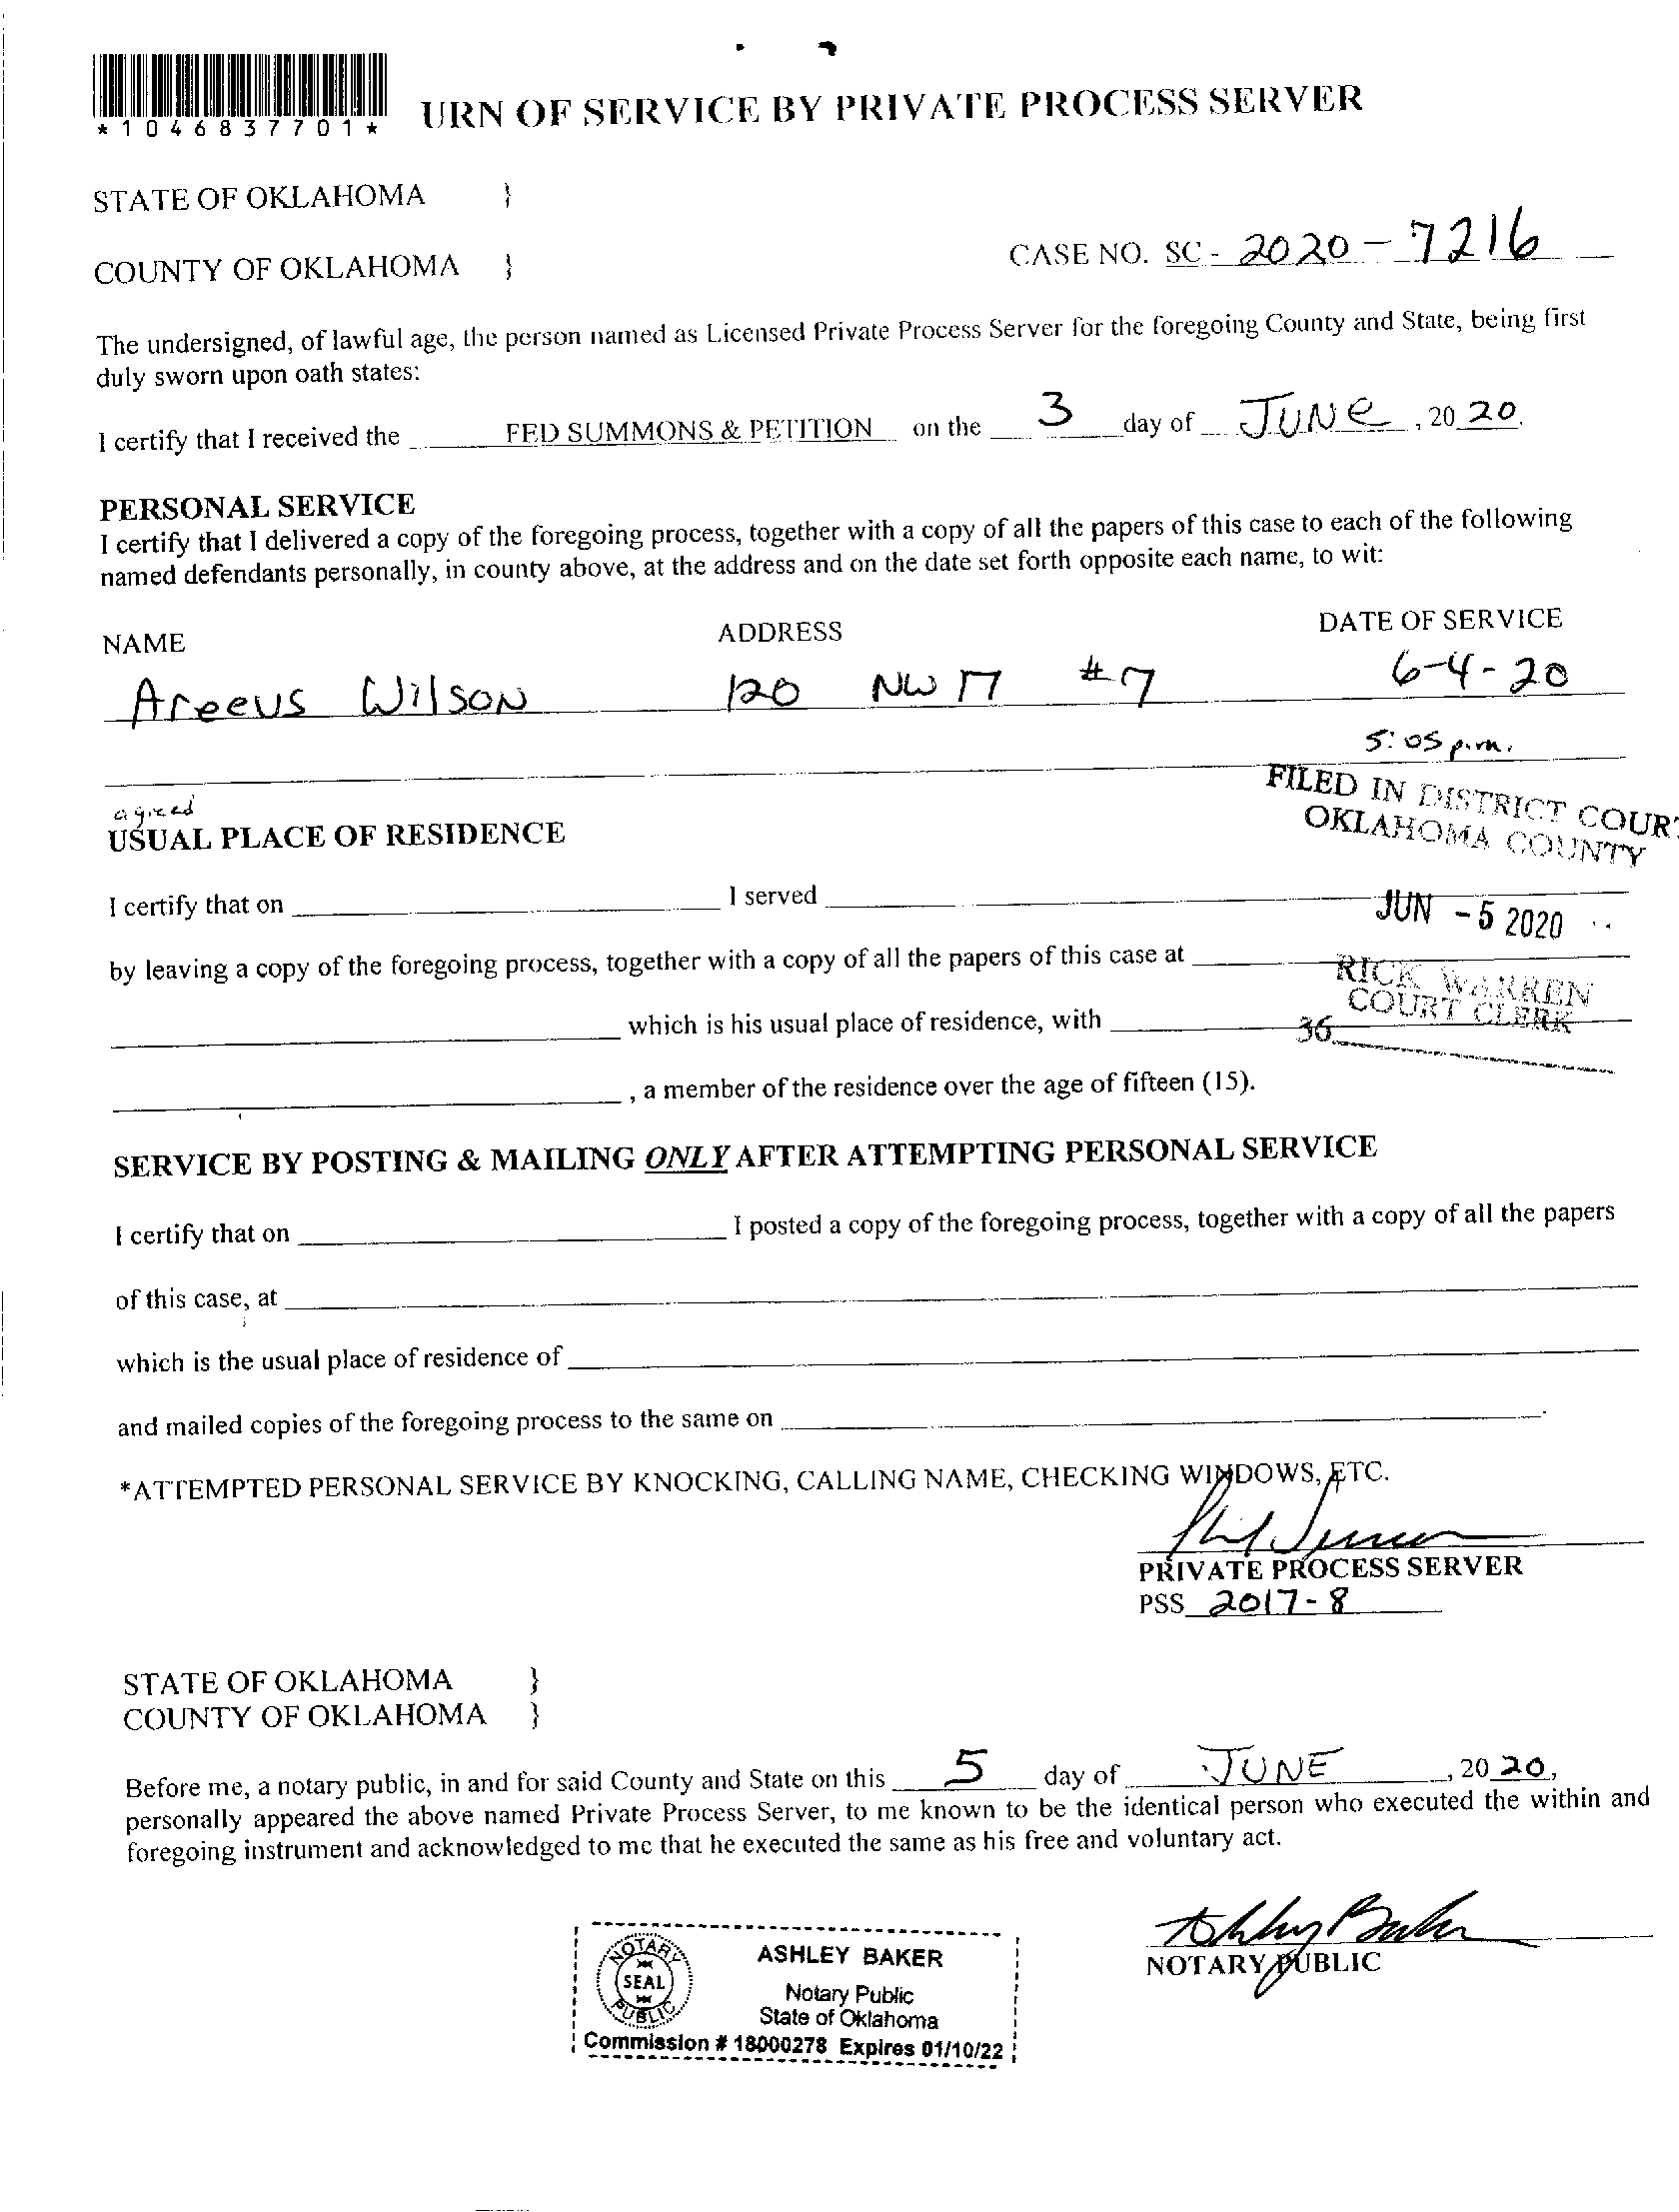 *1046837701*
URN OF SERVICE BY PRIVATE PROCESS SERVER
STATE OF OKLAHOMA }
COUNTY OF OKLAHOMA }
CASE NO. SC - 2020-7216
The undersigned, of lawful age, the person named as Licensed Private Process Server for the foregoing County and State, being first
duly sworn upon oath states:
I certify that I received the FED SUMMONS & PETITION on the 3 day of JUNe, 2020.
PERSONAL SERVICE
I certify that I delivered a copy of the foregoing process, together with a copy of all the papers of this case to each of the following
named defendants personally, in county above, at the address and on the date set forth opposite each name, to wit:
NAME ADDRESS DATE OF SERVICE
Areeus Wilson 120 NW 17 #7 6-4-20
5:05 p.m.
FILED IN DISTRICT COUR
OKLAHOMA COUNTY
agreed
USUAL PLACE OF RESIDENCE
I certify that on I served
JUN -5 2020
by leaving a copy of the foregoing process, together with a copy of all the papers of this case at
RICK WARREN
COURT CLERK
which is his usual place of residence, with
36
, a member of the residence over the age of fifteen (15).
SERVICE BY POSTING & MAILING ONLY AFTER ATTEMPTING PERSONAL SERVICE
I certify that on I posted a copy of the foregoing process, together with a copy of all the papers
of this case, at
which is the usual place of residence of
and mailed copies of the foregoing process to the same on .
*ATTEMPTED PERSONAL SERVICE BY KNOCKING, CALLING NAME, CHECKING WINDOWS, ETC.
PRIVATE PROCESS SERVER
PSS 2017-8
STATE OF OKLAHOMA }
COUNTY OF OKLAHOMA }
Before me, a notary public, in and for said County and State on this 5 day of JUNE, 2020,
personally appeared the above named Private Process Server, to me known to be the identical person who executed the within and
foregoing instrument and acknowledged to me that he executed the same as his free and voluntary act.
Ashley Baker
NOTARY PUBLIC
NOTARY
SEAL
PUBLIC
ASHLEY BAKER
Notary Public
State of Oklahoma
Commission # 18000278 Expires 01/10/22